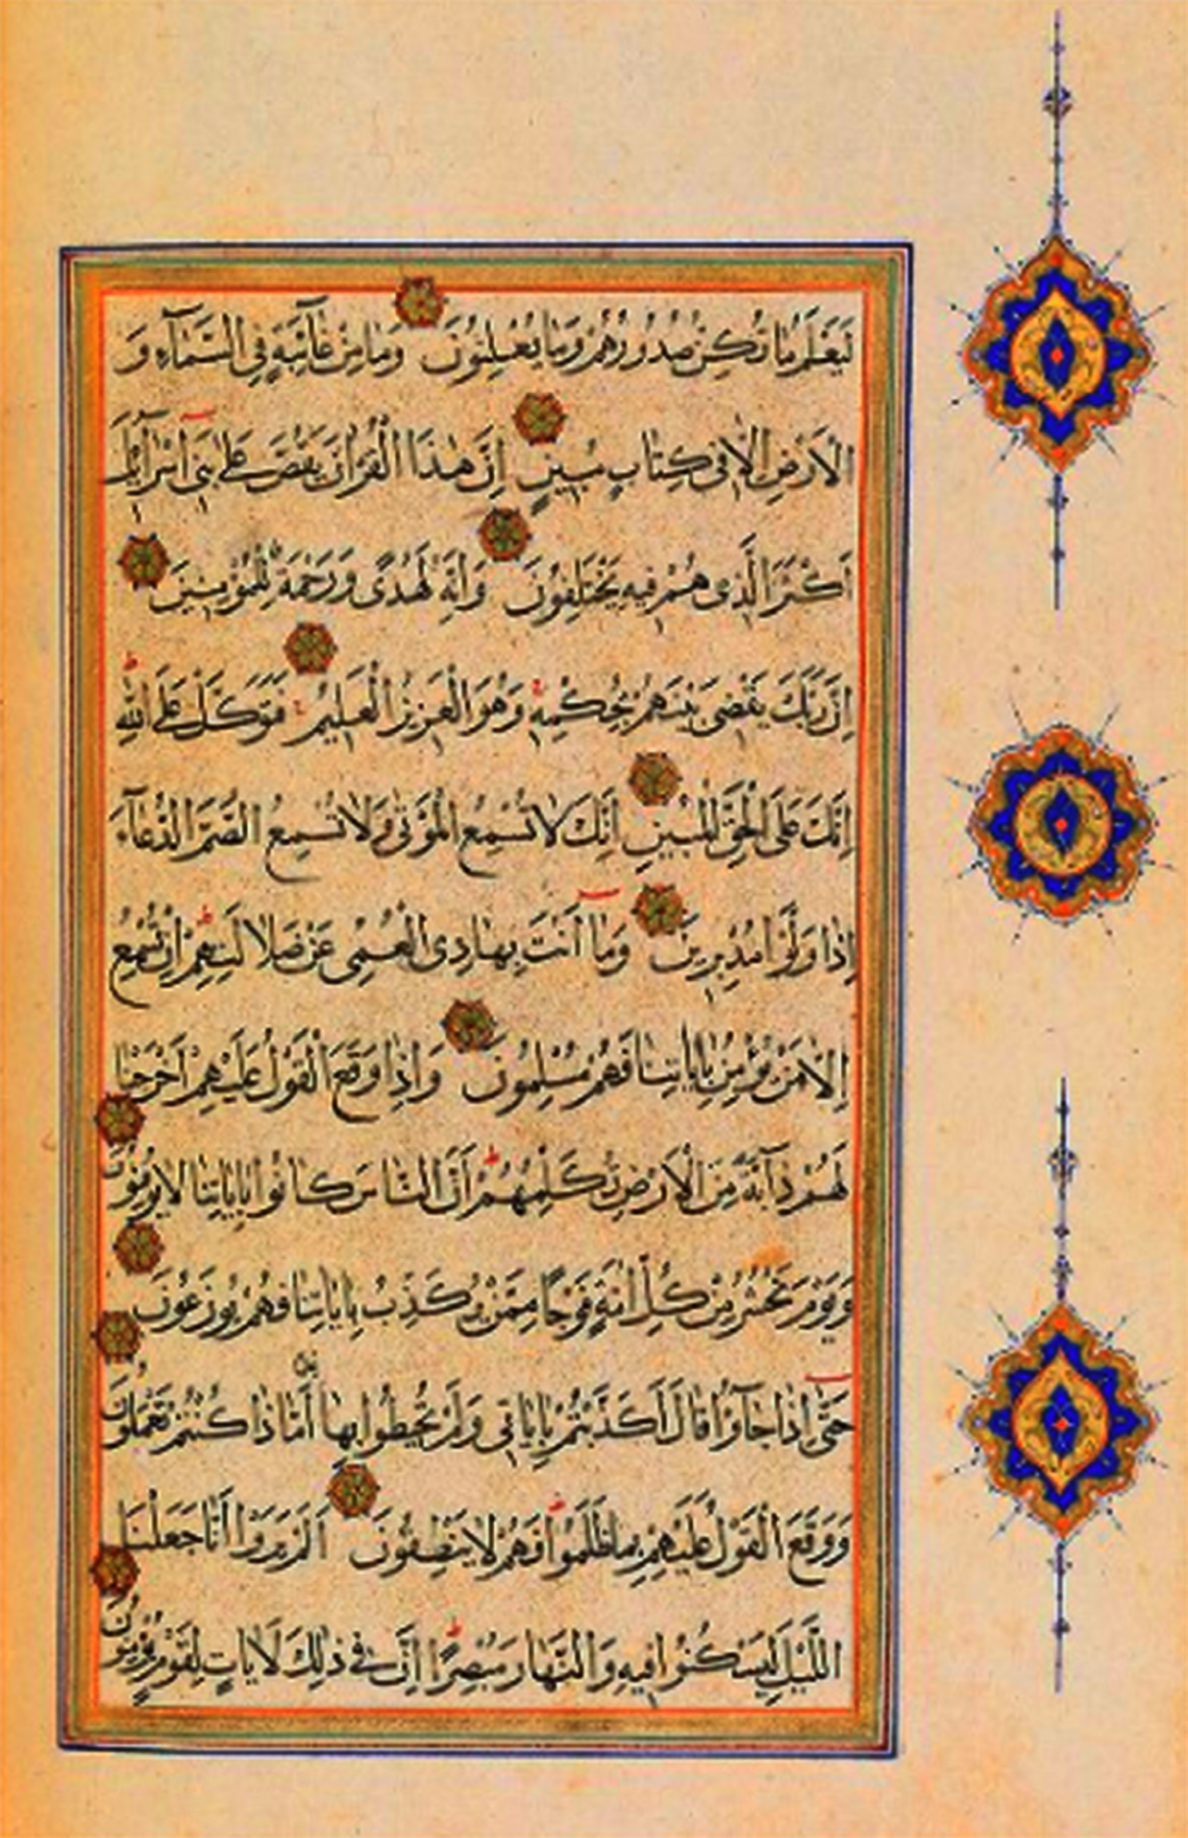 لَيَعْلَمُ مَا تُكِنُّ صُدُورُهُمْ وَمَا يُعْلِنُونَ وَمَا مِنْ غَآئِبَةٍ فِي السَّمَآءِ وَ
الْاَرْضِ اِلَّا فِى كِتَابٍ مُبِينٍ اِنَّ هٰذَا الْقُرْاٰنَ يَقُصُّ عَلٰى بَنِى اِسْرَآئِلَ
اَكْثَرَ الَّذِى هُمْ فِيهِ يَخْتَلِفُونَ وَاِنَّهُ لَهُدًى وَرَحْمَةٌ لِلْمُؤْمِنِينَ
اِنَّ رَبَّكَ يَقْضِى بَيْنَهُمْ بِحُكْمِهِ وَهُوَ الْعَزِيزُ الْعَلِيمُ فَتَوَكَّلْ عَلَى اللّٰهِ
اِنَّكَ عَلَى الْحَقِّ الْمُبِينِ اِنَّكَ لَا تُسْمِعُ الْمَوْتٰى وَلَا تُسْمِعُ الصُّمَّ الدُّعَآءَ
اِذَا وَلَّوْا مُدْبِرِينَ وَمَآ اَنْتَ بِهَادِى الْعُمْىِ عَنْ ضَلَالَتِهِمْ اِنْ تُسْمِعُ
اِلَّا مَنْ يُؤْمِنُ بِاٰيَاتِنَا فَهُمْ مُسْلِمُونَ وَاِذَا وَقَعَ الْقَوْلُ عَلَيْهِمْ اَخْرَجْنَا
لَهُمْ دَآبَّةً مِنَ الْاَرْضِ تُكَلِّمُهُمْ اَنَّ النَّاسَ كَانُوا بِاٰيَاتِنَا لَا يُوقِنُونَ
وَيَوْمَ نَحْشُرُ مِنْ كُلِّ اُمَّةٍ فَوْجًا مِمَّنْ يُكَذِّبُ بِاٰيَاتِنَا فَهُمْ يُوزَعُونَ
حَتّٰى اِذَا جَآؤُا قَالَ اَكَذَّبْتُمْ بِاٰيَاتِى وَلَمْ تُحِيطُوا بِهَا عِلْمًا اَمَّا ذَا كُنْتُمْ تَعْمَلُونَ
وَوَقَعَ الْقَوْلُ عَلَيْهِمْ بِمَا ظَلَمُوا فَهُمْ لَا يَنْطِقُونَ اَلَمْ يَرَوْا اَنَّا جَعَلْنَا
اللَّيْلَ لِيَسْكُنُوا فِيهِ وَالنَّهَارَ مُبْصِرًا اِنَّ فِى ذٰلِكَ لَاٰيَاتٍ لِقَوْمٍ يُؤْمِنُونَ